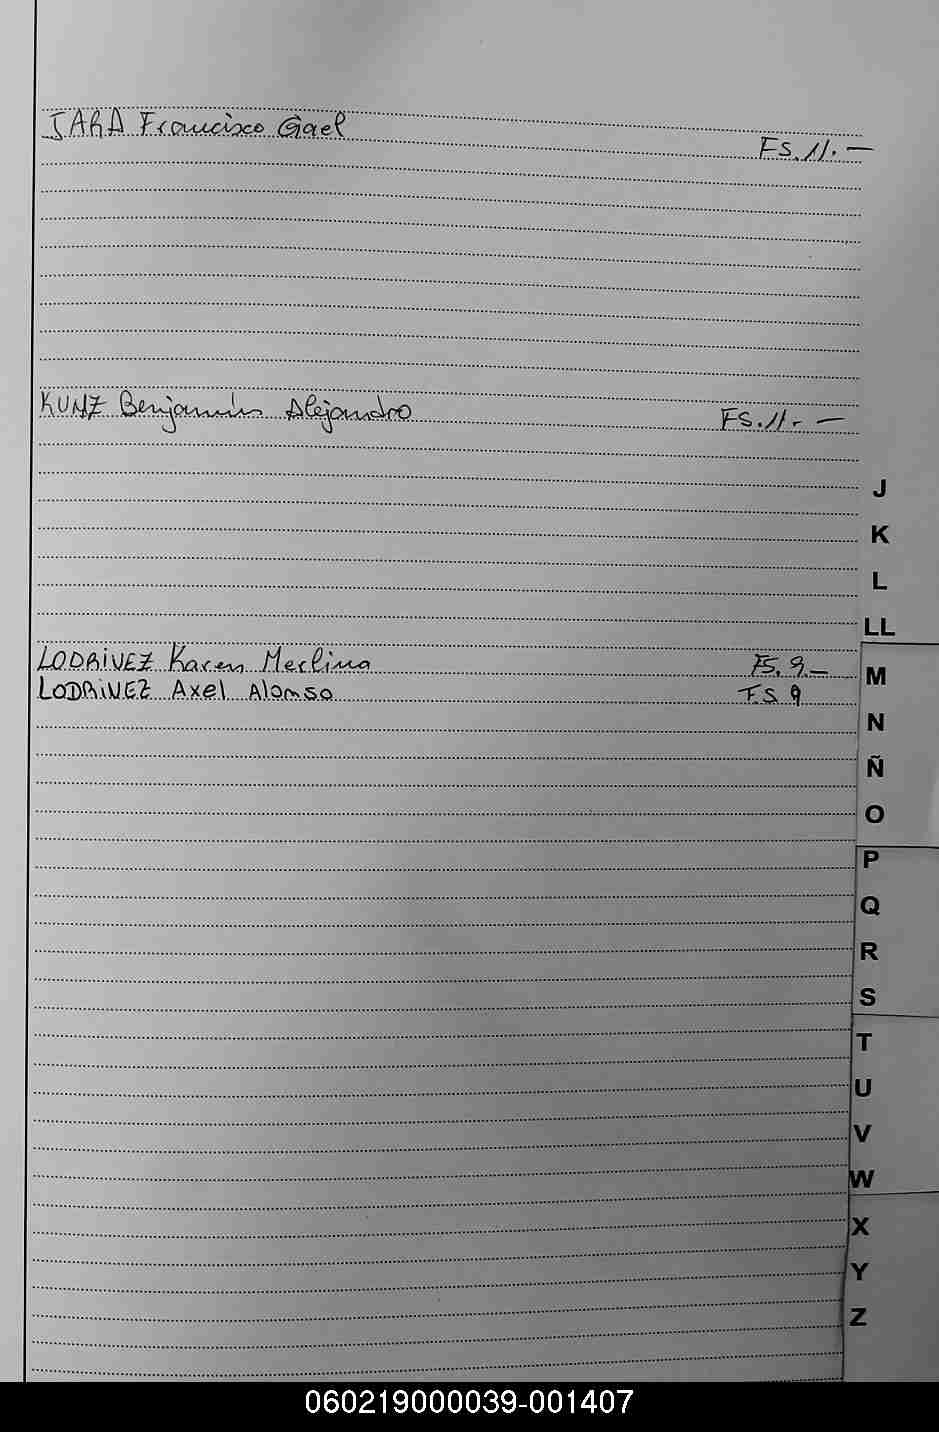 JARA Francisco Gael
FS. 11. —
KUNZ Benjamín Alejandro
FS. 11. —
J
K
L
LL
LODRIVEZ Karen Merlina
FS. 9.—
M
LODRIVEZ Axel Alonso
FS 9
N
Ñ
O
P
Q
R
S
T
U
V
W
X
Y
Z
060219000039-001407